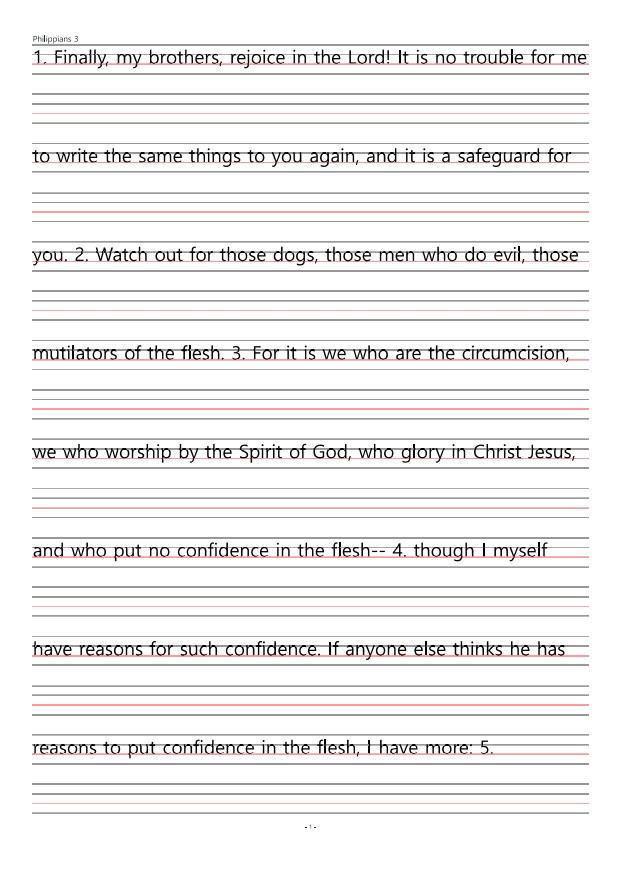 Philippians 3
1. Finally, my brothers, rejoice in the Lord! It is no trouble for me
to write the same things to you again, and it is a safeguard for
you. 2. Watch out for those dogs, those men who do evil, those
mutilators of the flesh. 3. For it is we who are the circumcision,
we who worship by the Spirit of God, who glory in Christ Jesus,
and who put no confidence in the flesh-- 4. though I myself
have reasons for such confidence. If anyone else thinks he has
reasons to put confidence in the flesh, I have more: 5.
- 1 -